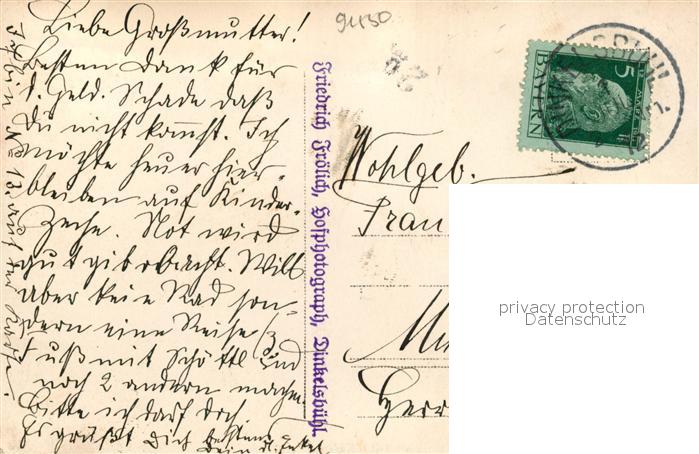 94130
Liebe Großmutter!
Besten Dank für
d. Geld. Schade daß
Du nicht kommst. Ich
möchte heuer hier-
bleiben auf Kinder-
zeche. Rot wird
gut gib obacht. Will
aber kein Rad son-
dern eine Reise z
Fuß mit Schöttl und
noch 2 andern machen
Bitte ich darf doch
Es grüßt Dich bestens
Dein dl. Enkel
Friedrich Frölich, Hofphotograph, Dinkelsbühl.
BAYERN
5
Wohlgeb.
Frau
Herr
privacy protection
Datenschutz